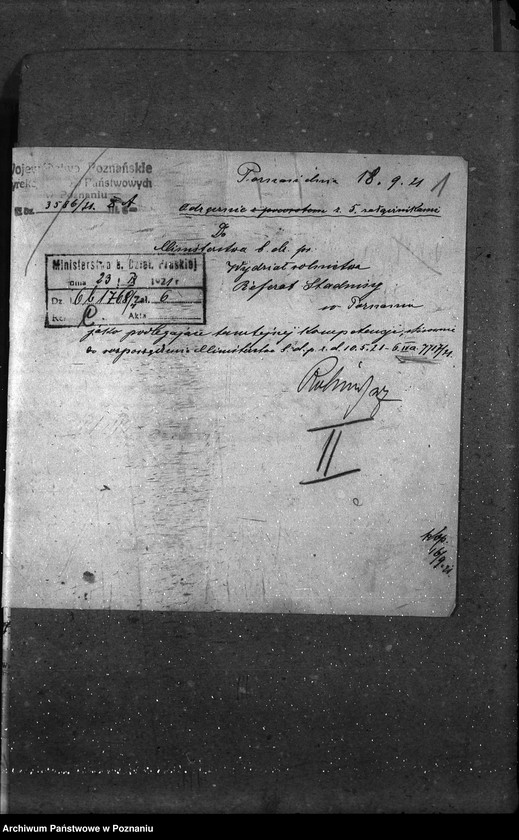 Województwo Poznańskie
Państwowych
w Poznaniu
Dz. 3586/21.
Poznań dnia 18.9.21
1
Odręcznie z powrotem z 5. załącznikami
Do
Ministerstwa b. dz. pr.
Wydział rolnictwa
Referat
w Poznaniu
Ministerstwo b. Dzieł. Pruskiej
dnia 23 1921 r.
Dz. zał. 6
Akta
jako podlegające tamtejszej kompetencji, stosownie
do rozporządzenia Ministerstwa b. d. p. z d. 10.5.21 - 6 IIa. 7717/21.
II
Archiwum Państwowe w Poznaniu